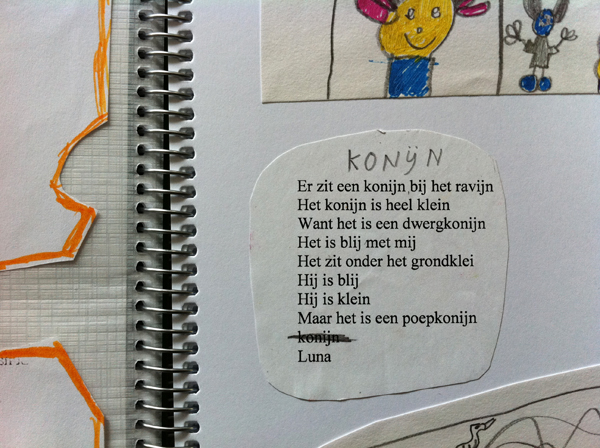 KONIJN
Er zit een konijn bij het ravijn
Het konijn is heel klein
Want het is een dwergkonijn
Het is blij met mij
Het zit onder het grondklei
Hij is blij
Hij is klein
Maar het is een poepkonijn
konijn
Luna